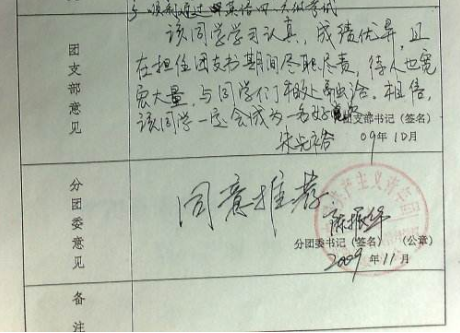 顺利通过
团支部意见
该同学学习认真，成绩优异，且
在担任团支书期间尽职尽责，待人也宽
宏大量，与同学们相处融洽。相信，
该同学一定会成为一名好
团支部书记（签名）
09年10月
分团委意见
同意推荐
陈振华
分团委书记（签名） （公章）
2009年11月
备注